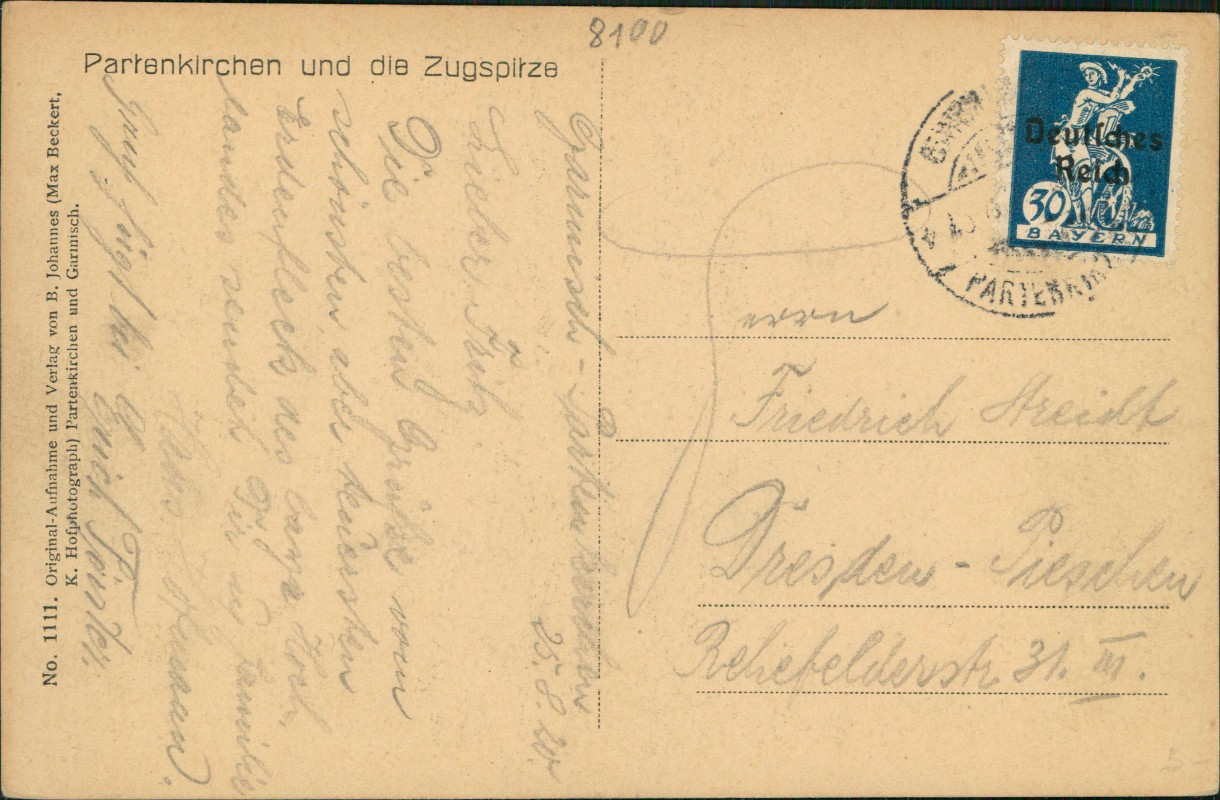 8100
Partenkirchen und die Zugspitze
No. 1111. Original-Aufnahme und Verlag von B. Johannes (Max Beckert,
K. Hofphotograph) Partenkirchen und Garmisch.
Deutsches
Reich
30
BAYERN
PARTENKIRCH
Garmisch-Partenkirchen
25.8.20.
Lieber Fritz.
Die besten Grüße vom
schönsten aber teuersten
Erdenfleck des bayr. Hoch-
landes sendet Dir u. Familie
Hofmann.
Gruß fügt bei Erich Förster.
Herrn
Friedrich Streidt
Dresden-Pieschen
Rehefelderstr. 31. III.